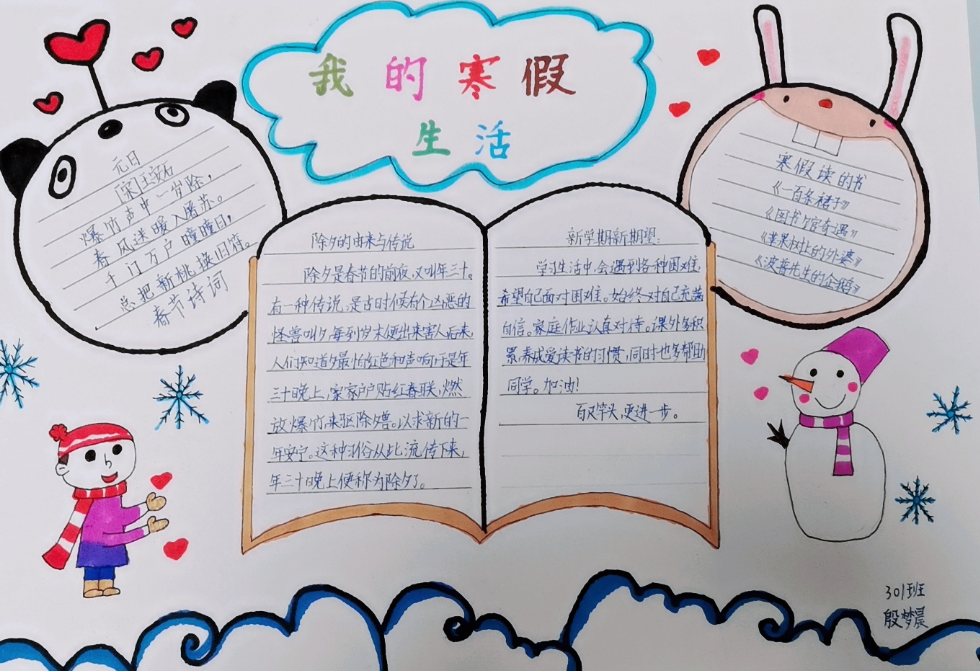 我的寒假
生活
元日
[宋]王安石
爆竹声中一岁除,
春风送暖入屠苏。
千门万户曈曈日,
总把新桃换旧符。
春节诗词
除夕的由来与传说
除夕是春节的前夜,又叫年三十。
有一种传说,是古时候有个凶恶的
怪兽叫夕,每到岁末便出来害人后来,
人们知道夕最怕红色和声响于是年
三十晚上,家家户户贴红春联,燃
放爆竹,来驱除夕兽,以求新的一
年安宁。这种习俗从此流传下来,
年三十晚上便称为除夕了。
新学期新期望:
学习生活中,会遇到各种困难,
希望自己面对困难。始终对自己充满
自信。家庭作业认真对待。课外多积
累,养成爱读书的习惯,同时也多帮助
同学。加油!
百尺竿头,更进一步。
寒假读的书
《一百条裙子》
《图书馆奇遇》
《苹果树上的外婆》
《波普先生的企鹅》
301班
殷梦晨